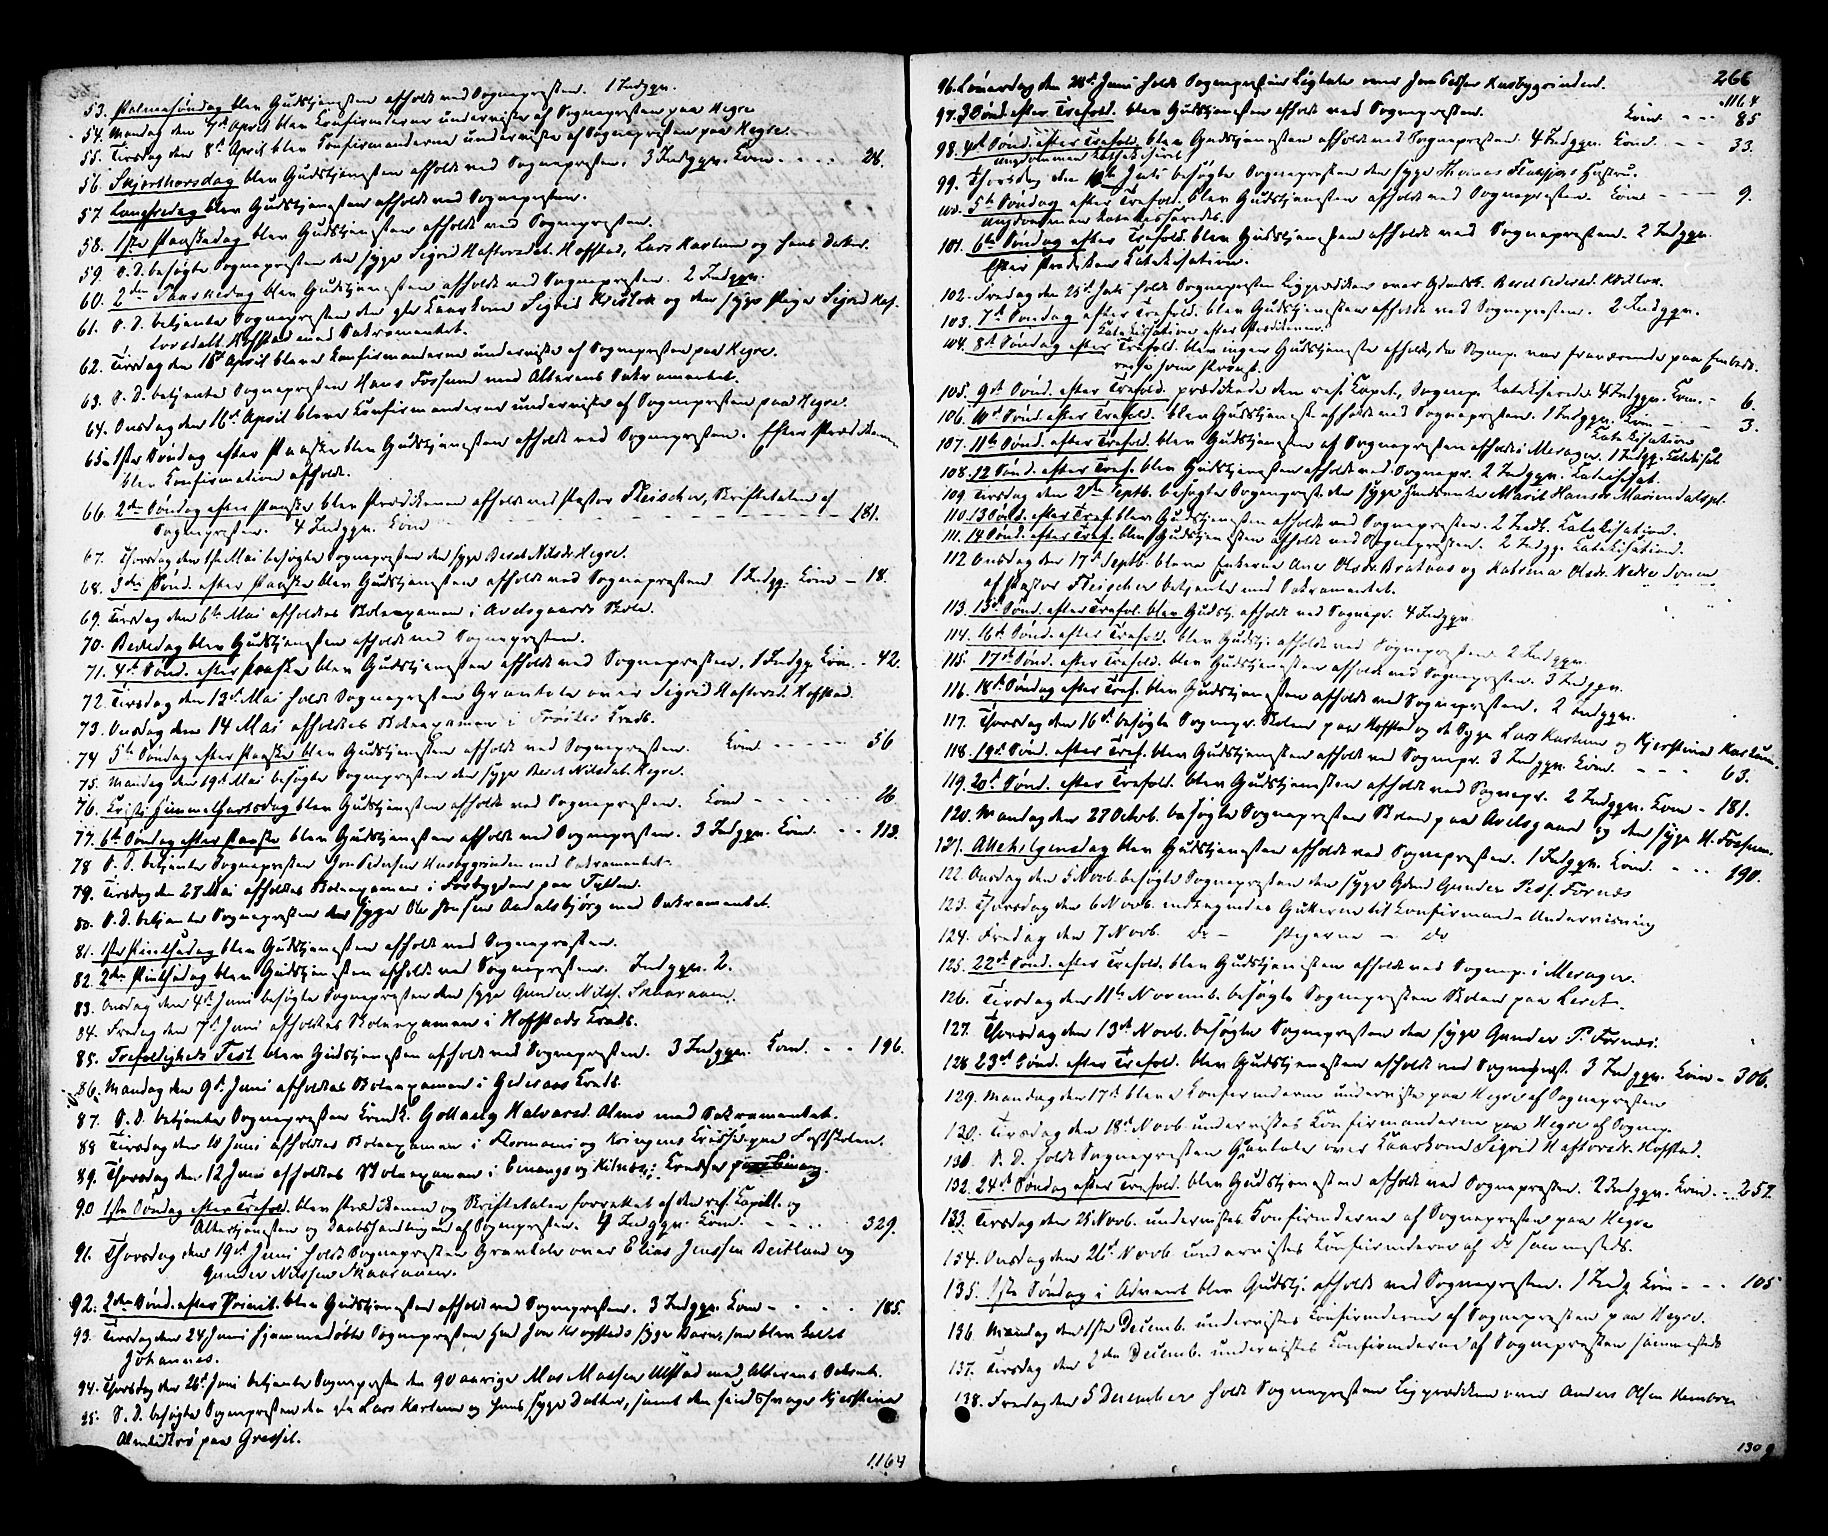 53. Palmesøndag blev Gudstjenesten afholdt ved Sognepresten. 1 Indggn.
54. Mandag den 7d April blev Confirmanderne underviste af Sognepresten paa Hegre
55. Tirsdag den 8d April blev Confirmanderne underviste af Sognepresten paa Hegre.
56. Skjerthorsdag blev Gudstjenesten afholdt ved Sognepresten. 3 Indggn. Com. - - - 28.
57. Langfredag blev Gudstjenesten afholdt ved Sognepresten.
58. 1ste Paaskedag blev Gudstjenesten afholdt ved Sognepresten.
59. S. D. besøgte Sognepresten den syge Sigrid Haftorsdt. Hoffstad, Lars Karlum og hans Datter.
60. 2den Paaskedag blev Gudstjenesten afholdt ved Sognepresten. 2 Indggn.
61. S. D. betjente Sognepresten den gle Kaarkone Sigrid og den syge Pige Sigrid Haf-
torsdatt. Hoffstad med Sakramentet.
62. Tirsdag den 15d April bleve Confirmanderne underviste af Sognepresten paa Hegre.
63. S. D. betjente Sognepresten Hans Fossum med Alterens Sakramentet.
64. Onsdag den 16d April bleve Confirmanderne underviste af Sognepresten paa Hegre.
65. 1ste Søndag efter Paaske blev Gudstjenesten afholdt ved Sognepresten. Efter Prædiken
blev Confirmation afholdt.
66. 2den Søndag efter Paaske blev Prædikenen afholdt ved Pastor Fleischer, Skriftetalen af
Sognepresten. 4 Indggn. Com - - - 181.
67. Thorsdag den 1ste Mai besøgte Sognepresten den syge Beret Nilsdt Hegre.
68. 3die Sønd. efter Paaske blev Gudstjenesten afholdt ved Sognepresten 1 Indgg. Com - 18.
69. Tirsdag den 6te Mai afholdtes Skoleexamen i Avelsgaards Skole.
70. Bededag blev Gudstjenesten afholdt ved Sognepresten.
71. 4d Sønd. efter Paaske blev Gudstjenesten afholdt ved Sognepresten. 1 Indgg. Com. - 42.
72. Tirsdag den 13d Mai holdt Sognepresten Gravtale over Sigrid Haftorsd. Hoffstad.
73. Onsdag den 14 Mai afholdtes Skoleexamen i Frøites Kreds.
74 5te Søndag efter Paaske blev Gudstjenesten afholdt ved Sognepresten. Com - - - 56
75. Mandag den 19d Mai besøgte Sognepresten den syge Beret Nilsdat. Hegre.
76. Kristi Himmelfartsdag blev Gudstjenesten afholdt ved Sognepresten. Com - - - 26
77. 6te Søndag efter Paaske blev Gudstjenesten afholdt ved Sognepresten. 3 Indggn. Com. - - 113.
78 S. D. betjente Sognepresten Jon Pedersen Husbygrinden med Sakramentet.
79. Tirsdag den 27 Mai afholdtes Skoleexamen i Forbygden paa
80. S. D. betjente Sognepresten den syge Ole Jonsen med Sakramentet.
81. 1ste Pintsedag blev Gudstjenesten afholdt ved Sognepresten.
82. 2den Pintsedag blev Gudstjenesten afholdt ved Sognepresten. Indggn. 2.
83. Onsdag den 4d Juni besøgte Sognepresten den syge Gunder Nilss. Skaaraaen.
84. Fredag den 7d Juni afholdtes Skoleexamen i Hoffstads Kreds.
85. Trefoldigheds Fest blev Gudstjenesten afholdt ved Sognepresten. 3 Indggn. Com. - - 196.
86. Mandag den 9d Juni afholdtes Skoleexamen i Gederaas Kreds.
87. S. D. betjente Sognepresten Halvorsd. Almo med Sakramentet.
88 Tirsdag den 10 Juni afholdtes Skoleexamen i Flormans og Kredse paa Fastskolen.
89. Thorsdag den 12 Juni afholdtes Skoleexamen i Einangs og Kredse
90 1ste Søndag efter Trefold. blev Prædikenen og Skriftetalen forrettet af den res. Capell. og
Altertjenesten og Daabshandlingen af Sognepresten. 4 Indggn. Com. - - - 329.
91. Thorsdag den 19d Juni holdt Sognepresten Gravtale over Elias Jenssen Reitland og
Gunder Nilssen Skaaraaen.
92. 2den Sønd. efter Trinit. blev Gudstjenesten afholdt ved Sognepresten. 3 Indggn. Com - - 185.
93. Tirsdag den 24 Juni hjemmedøbte Sognepresten Gmd Jon Krogstads syge Barn, som blev kaldt
Johannes.
94. Thorsdag den 26d Juni betjente Sognepresten den 90 aarige Mor Ulstad med Alterens Sakrat.
95. S. D. besøgte Sognepresten den Lars Karlum og hans syge Datter, samt den sindssvage Kjerstine
paa Gressli.
1164
266
96. Løverdag den 28d Juni holdt Sognepresten Ligtale over Jon Peders. Husbygrinden.
1164
97. 3 Sønd. efter Trefold. blev Gudstjenesten afholdt ved Sognepresten. Com. - - - 85
98. 4d Sønd. efter Trefold. blev Gudstjenesten afholdt ved Sognepresten. 4 Indggn. Com. - - 33.
Ungdommen katekiseret
99. Thorsdag den 10de Juli besøgte Sognepresten den syge Thomas Hustru.
100. 5te Søndag efter Trefold. blev Gudstjenesten afholdt ved Sognepresten. Com - - - 9.
Ungdommen katekiseredes.
101. 6te Søndag efter Trefold. blev Gudstjenesten afholdt ved Sognepresten. 2 Indggn.
Efter Prædiken Katekisation.
102. Fredag den 25d Juli holdt Sognepresten Ligprædiken over Beret Pedersd.
103. 7d Søndag efter Trefold. blev Gudstjenesten afholdt ved Sognepresten. 2 Indggn.
Katekisation efter Prædikenen.
104. 8d Søndag efter Trefold. blev ingen Gudstjeneste afholdt, da Sognep. var fraværende paa Embeds-
reise som Provst.
105. 9d Sønd. efter Trefold. prædikede den res. Capel., Sognep. katekiserede. 4 Indggn. Com. - 6.
106. 10d Sønd. efter Trefold. blev Gudstjenest afholdt ved Sognepresten. 1 Indggn. Com - - 3.
Katekisation
107. 11te Sønd. efter Trefold. blev Gudstjenesten af Sognepresten afholdt i Merager. 1 Indgg. Katekisat
108. 12 Sønd. efter Tref. blev Gudstjenesten afholdt ved Sognepr. 2 Indggn. Katechisat.
109 Tirsdag den 2den Septb. besøgte Sogneprest. den syge Marit Hansd. Mariendalspl.
110. 13 Sønd. efter Tref. blev Gudstjenesten afholdt ved Sognepresten. 2 Indt. Katekisation.
111. 14 Sønd. efter Tref. blev Gudstjenesten afholdt ved Sognepresten. 2 Indgg. Katekisation.
112 Onsdag den 17d Septb. bleve Enkerne Ane Olsdr. Brataas og Katrina Olsdr. Nedre
af Pastor Fleischer betjente med Sakramentet.
113. 15d Sønd. efter Trefol. blev Gudstj. afholdt ved Sognepr. 4 Indggn.
114. 16d Sønd. efter Trefold. blev Gudstj. afholdt ved Sognepresten. 2 Indggn.
115. 17d Sønd. efter Trefold. blev Gudstjenesten afholdt ved Sognepresten. 3 Indggn.
116. 18d Søndag efter Tref. blev Gudstjenesten afholdt ved Sognepresten. 2 Indggn.
117. Thorsdag den 16d besøgte Sognepr. Skolen paa Hoffstad og de Syge Lars Karlum og Kjerstine Karlum.
118. 19d Sønd. efter Tref. blev Gudstjenesten afholdt ved Sognepr. 3 Indggn. Com. - - - 63.
119. 20d Sønd. efter Trefold. blev Gudstjenesten afholdt ved Sognepr. 2 Indggn. Com - 181.
120. Mandag den 27 Octob. besøgte Sognepresten Skolen paa Avelsgaard og den syge H. Fossum.
121. Allehelgensdag blev Gudstjenesten afholdt ved Sognepresten. 1 Indggn. Com. - - - 190.
122. Onsdag den 5 Novb. besøgte Sognepresten den syge Gmd Gunder Fornæs
123. Thorsdag den 6 Novb. indtegnedes Gutterne til Confirmands-Undervisning
124. Fredag den 7 Novb. Do - Pigerne - Do
125. 22d Sønd. efter Trefold. blev Gudstjenesten afholdt ved Sognep. i Merager.
126. Tirsdag den 11te Novemb. besøgte Sognepresten Skolen paa
127. Thorsdag den 13d Novb. besøgte Sognepresten den syge Gunder P. Fornæs.
128 23d Sønd. efter Trefold. blev Gudstjenesten afholdt ved Sogneprest. 3 Indggn. Com - 306.
129. Mandag den 17d bleve Confirmderne underviste paa Hegre af Sognepresten
130. Tirsdag den 18d Novb underviistes Confirmanderne paa Hegre af Sognep.
131. S. D. holdt Sognepresten Gravtale over Kaarkone Sigrid Haftorsdr. Hofstad.
132. 24d Søndag efter Trefold. blev Gudstjenesten afholdt ved Sognepresten. 2 Indggn. Com. - - 257.
133. Tirsdag den 25 Novb. undervistes Confirmderne af Sognepresten paa Hegre
134. Onsdag den 26d Novb undervistes Confirmderne af Do sammesteds.
135. 1ste Søndag i Advent blev Gudstj. afholdt ved Sognepresten. 1 Indg. Com - - - 105
136. Mandag den 1ste Decemb. undervistes Confirmderne af Sognepresten paa Hegre.
137. Tirsdag den 2den Decemb. undervistes Confirmderne af Sognepresten sammesteds
138. Fredag den 5 December holdt Sognepresten Ligprædiken over Anders Olsen